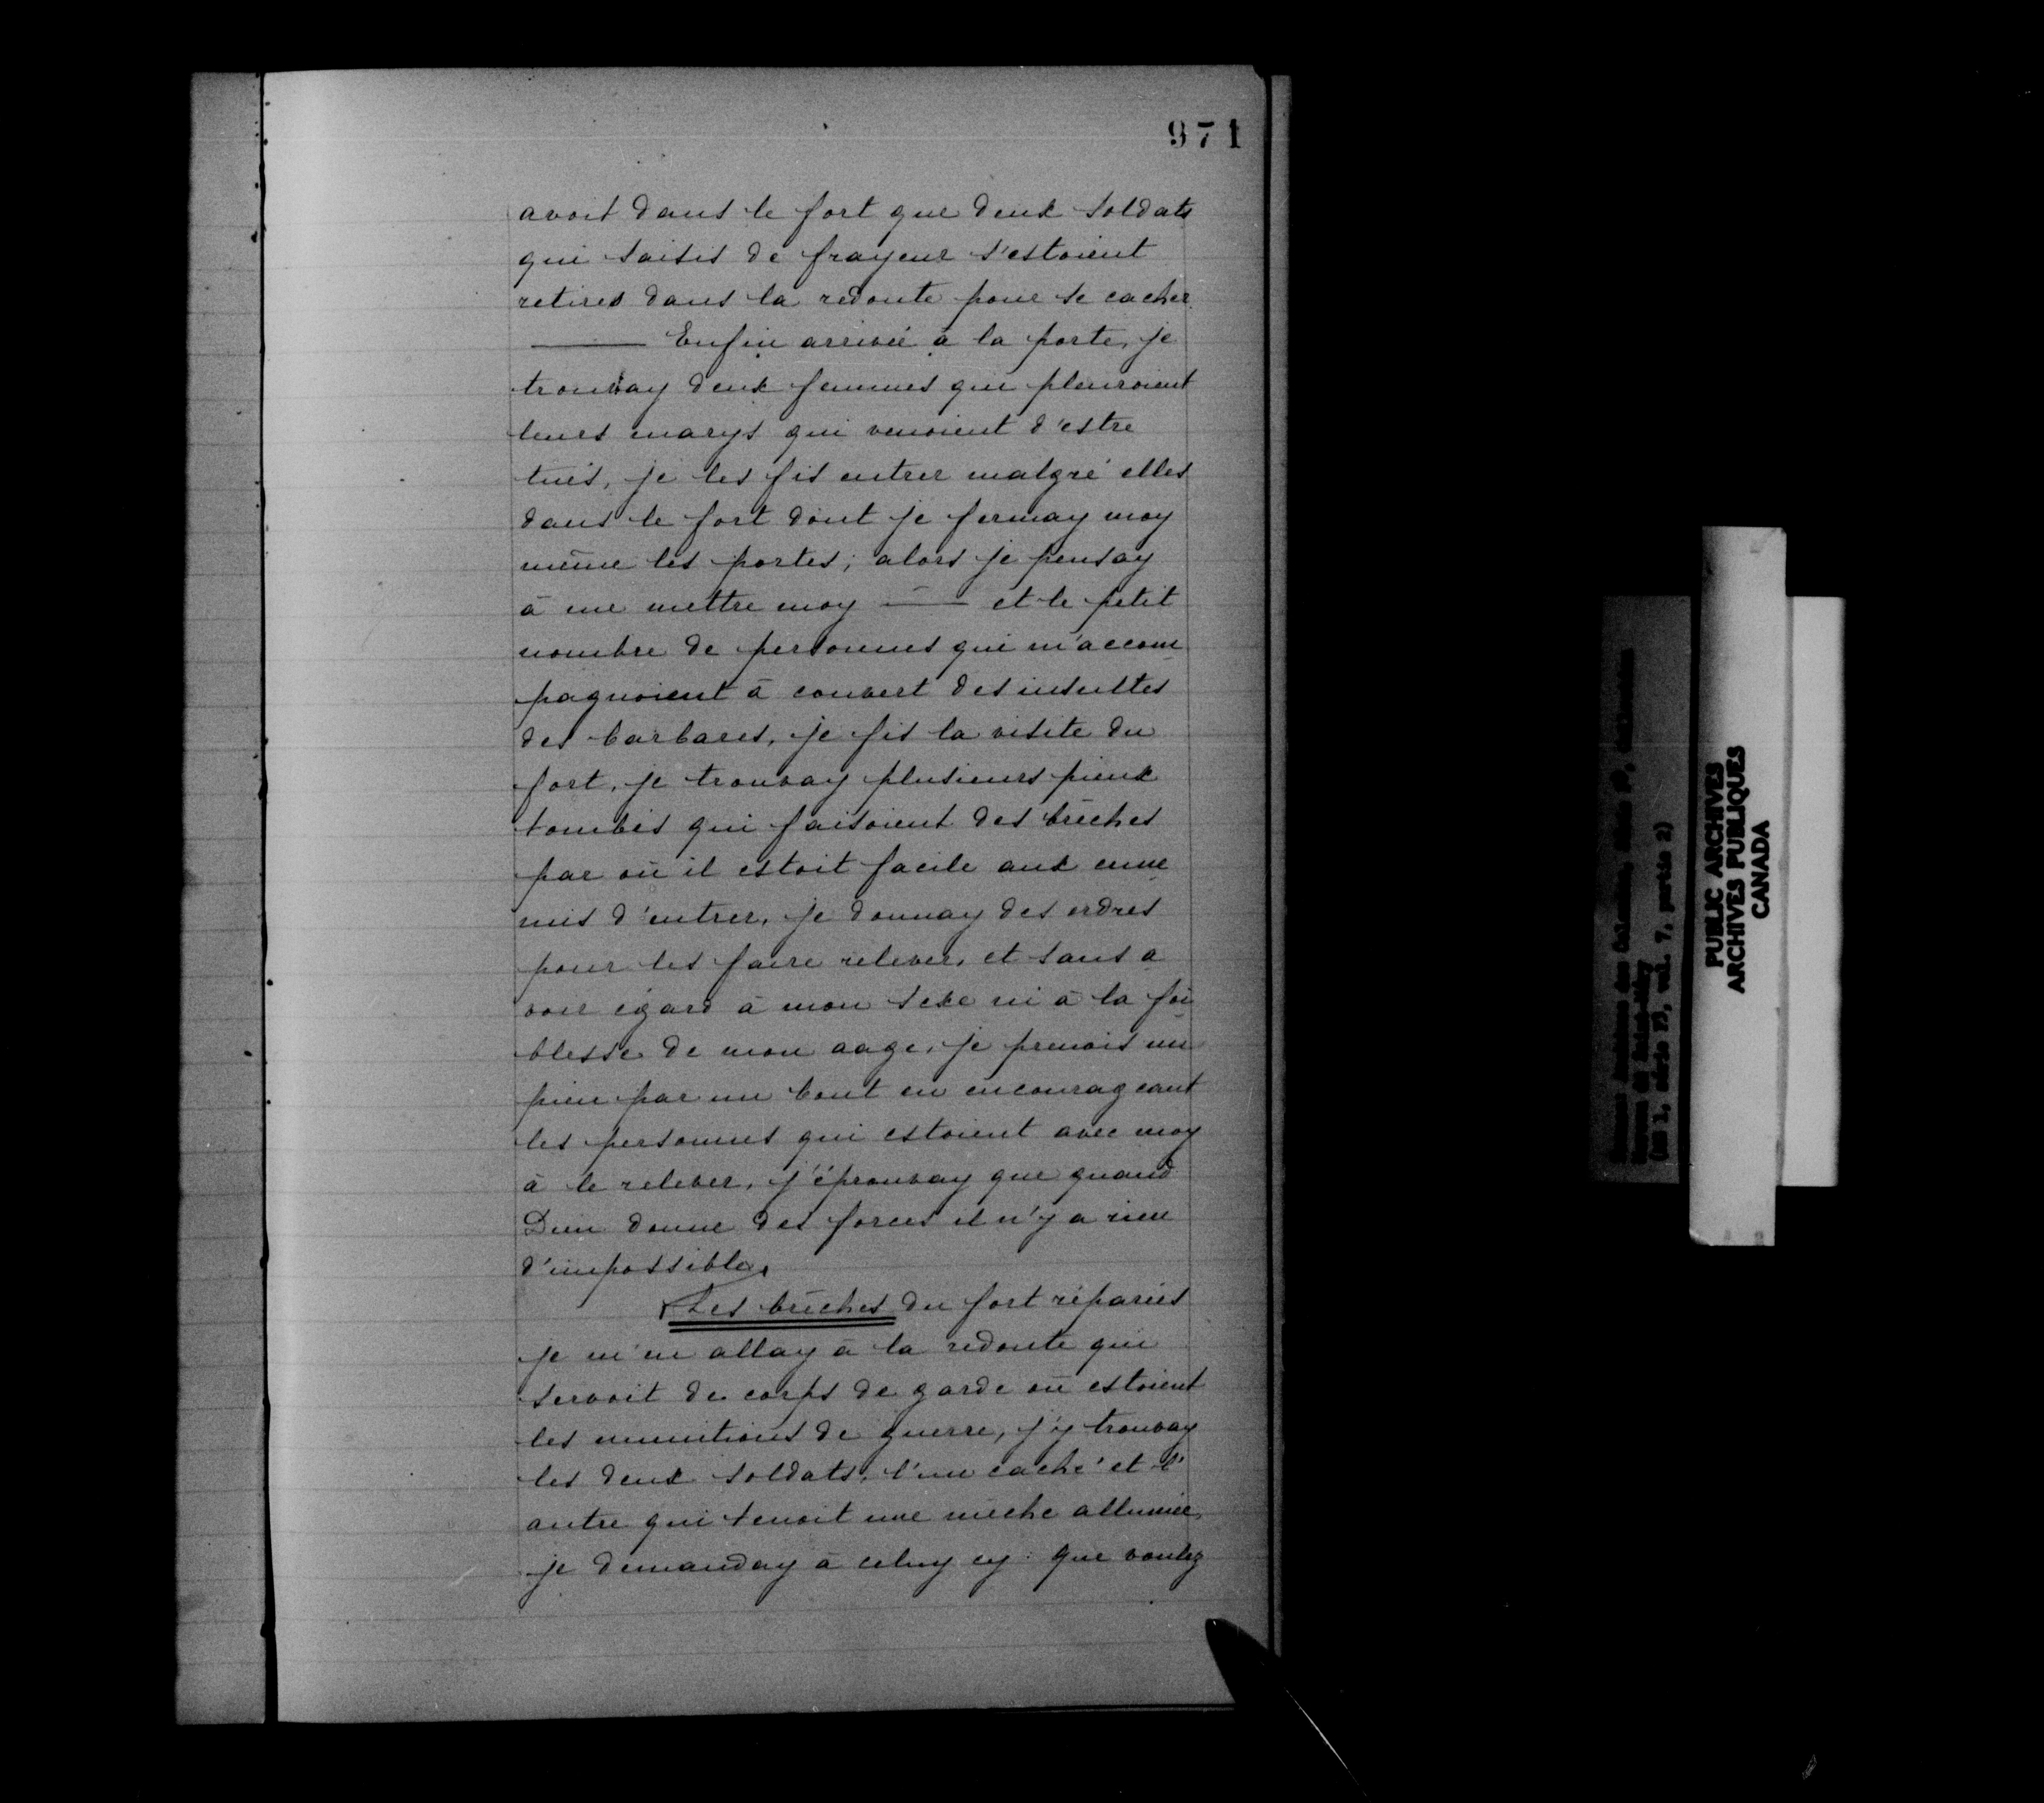 971
avoit dans le fort que deux soldats
qui saisis de frayeur s'estoient
retirés dans la redoute pour se cacher.
——— Enfin arrivée à la porte, je
trouvay deux femmes qui pleuroient
leurs marys qui venoient d'estre
tués, je les fis entrer malgré elles
dans le fort dont je fermay moy
même les portes, alors je pensay
à me mettre moy —— et le petit
nombre de personnes qui m'accom
pagnoient à couvert des insultes
des barbares, je fis la visite du
fort, je trouvay plusieurs pieux
tombés qui faisoient des brêches
par où il estoit facile aux enne
mis d'entrer, je donnay des ordres
pour les faire relever, et sans a
voir égard à mon sexe ni à la foi
blesse de mon aage, je prenois un
pieu par un bout en encourageant
les personnes qui estoient avec moy
à le relever, j'éprouvay que quand
Dieu donne des forces il n'y a rien
d'impossible.
Les brêches du fort réparées
je m'en allay à la redoute qui
servoit de corps de garde où estoient
les munitions de guerre, j'y trouvay
les deux soldats, l'un caché et l'
autre qui tenoit une mèche allumée,
je demanday à celuy cy: que voulez
PUBLIC ARCHIVES
ARCHIVES PUBLIQUES
CANADA
(MG 1, série F3, vol. 7, partie 2)